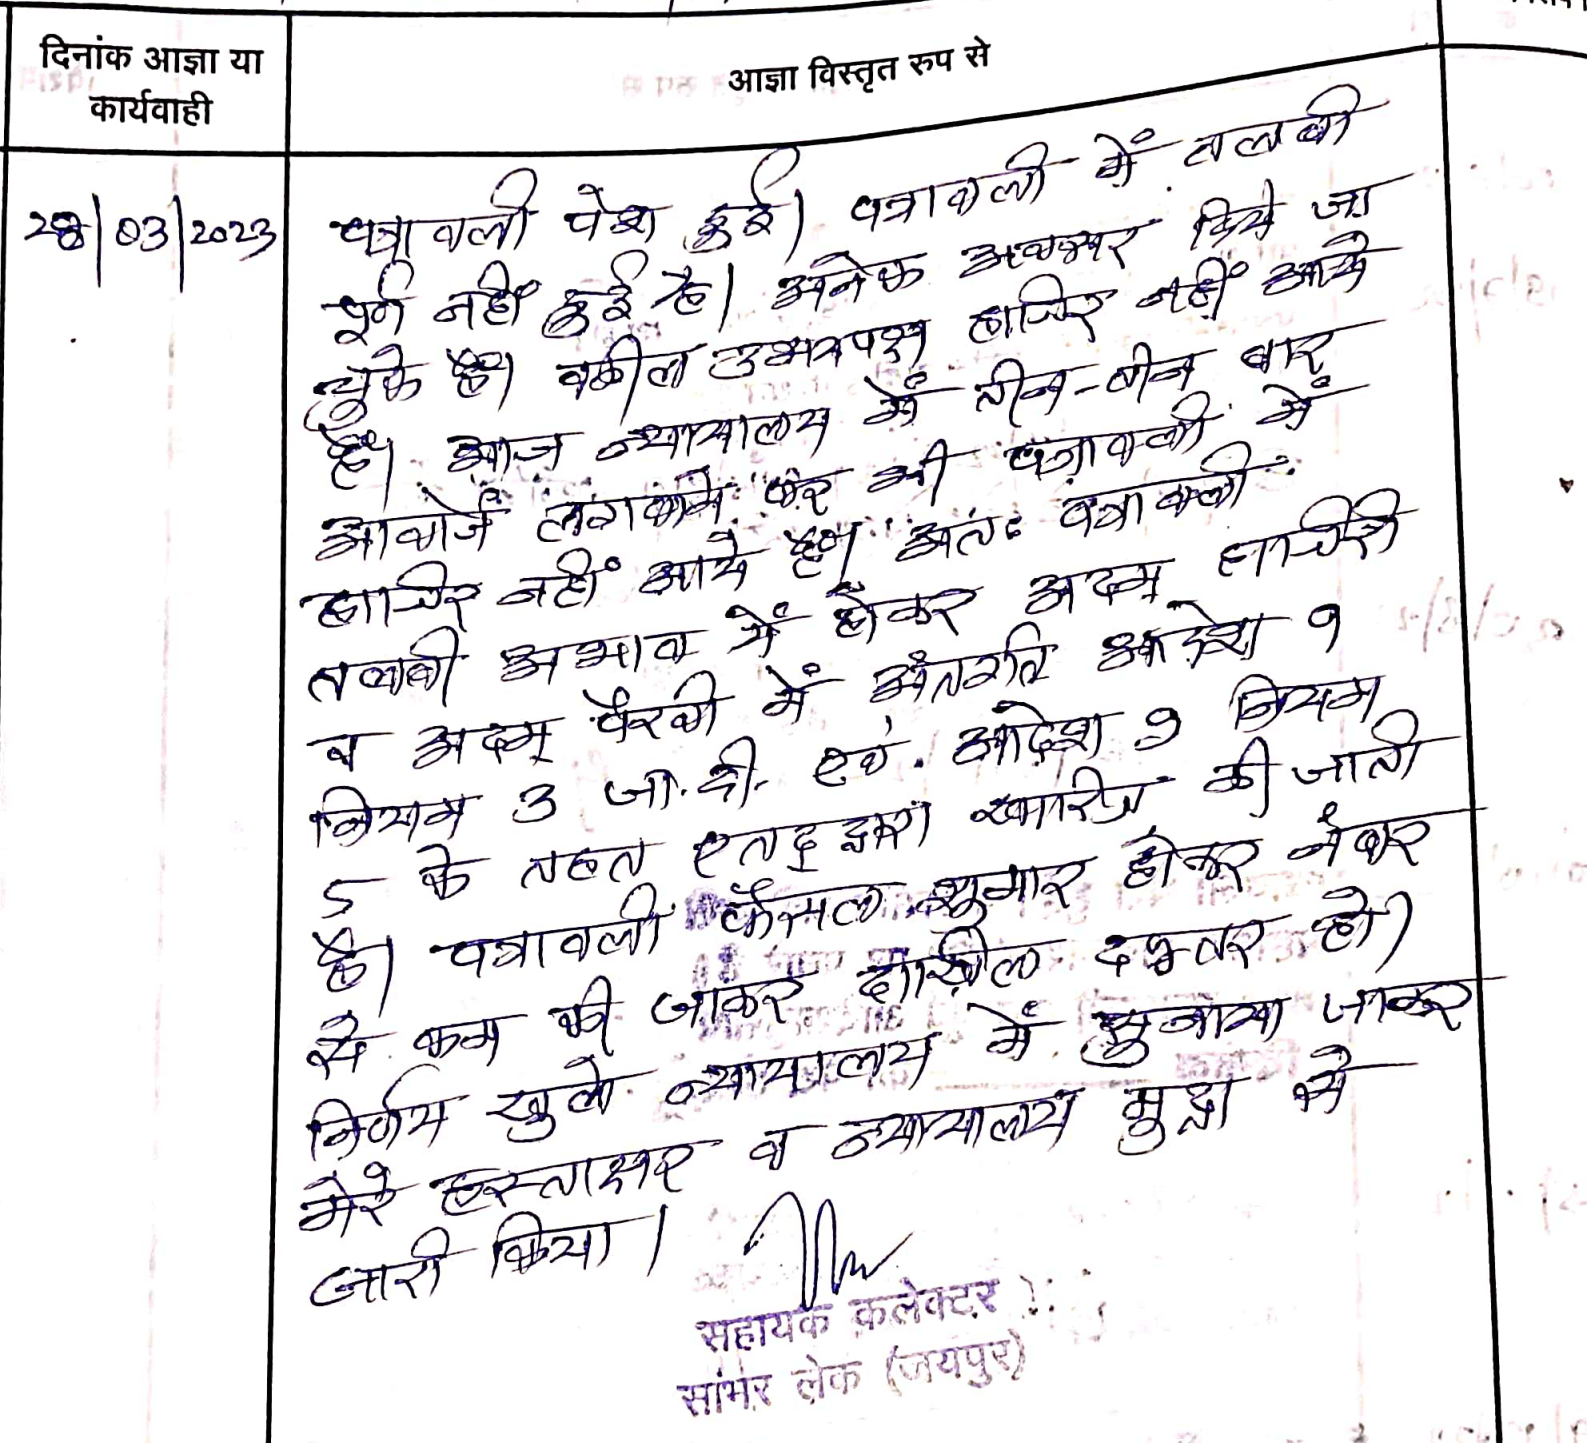 दिनांक आज्ञा या
कार्यवाही
आज्ञा विस्तृत रुप से
28/03/2023
पत्रावली पेश हुई। पत्रावली में तलबी
पूर्ण नहीं हुई है। अनेक अवसर दिये जा
चुके है। वकील उभयपक्ष हाजिर नहीं आये
है। आज न्यायालय में तीन-तीन बार
आवाजें लगवाने पर भी पत्रावली में
हाजिर नहीं आये है। अतः पत्रावली
तलबी अभाव में होकर अदम हाजिरी
व अदम् पैरवी में अंतर्गत आदेश 9
नियम 3 जा.दी. एवं आदेश 9 नियम
5 के तहत एतद् द्वारा खारिज की जाती
है। पत्रावली फैसल शुमार होकर नंबर
से कम की जाकर दाखिल दफ्तर हो।
निर्णय खुले न्यायालय में सुनाया जाकर
मेरे हस्ताक्षर व न्यायालय मुद्रा से
जारी किया।
सहायक कलेक्टर
सांभर लेक (जयपुर)